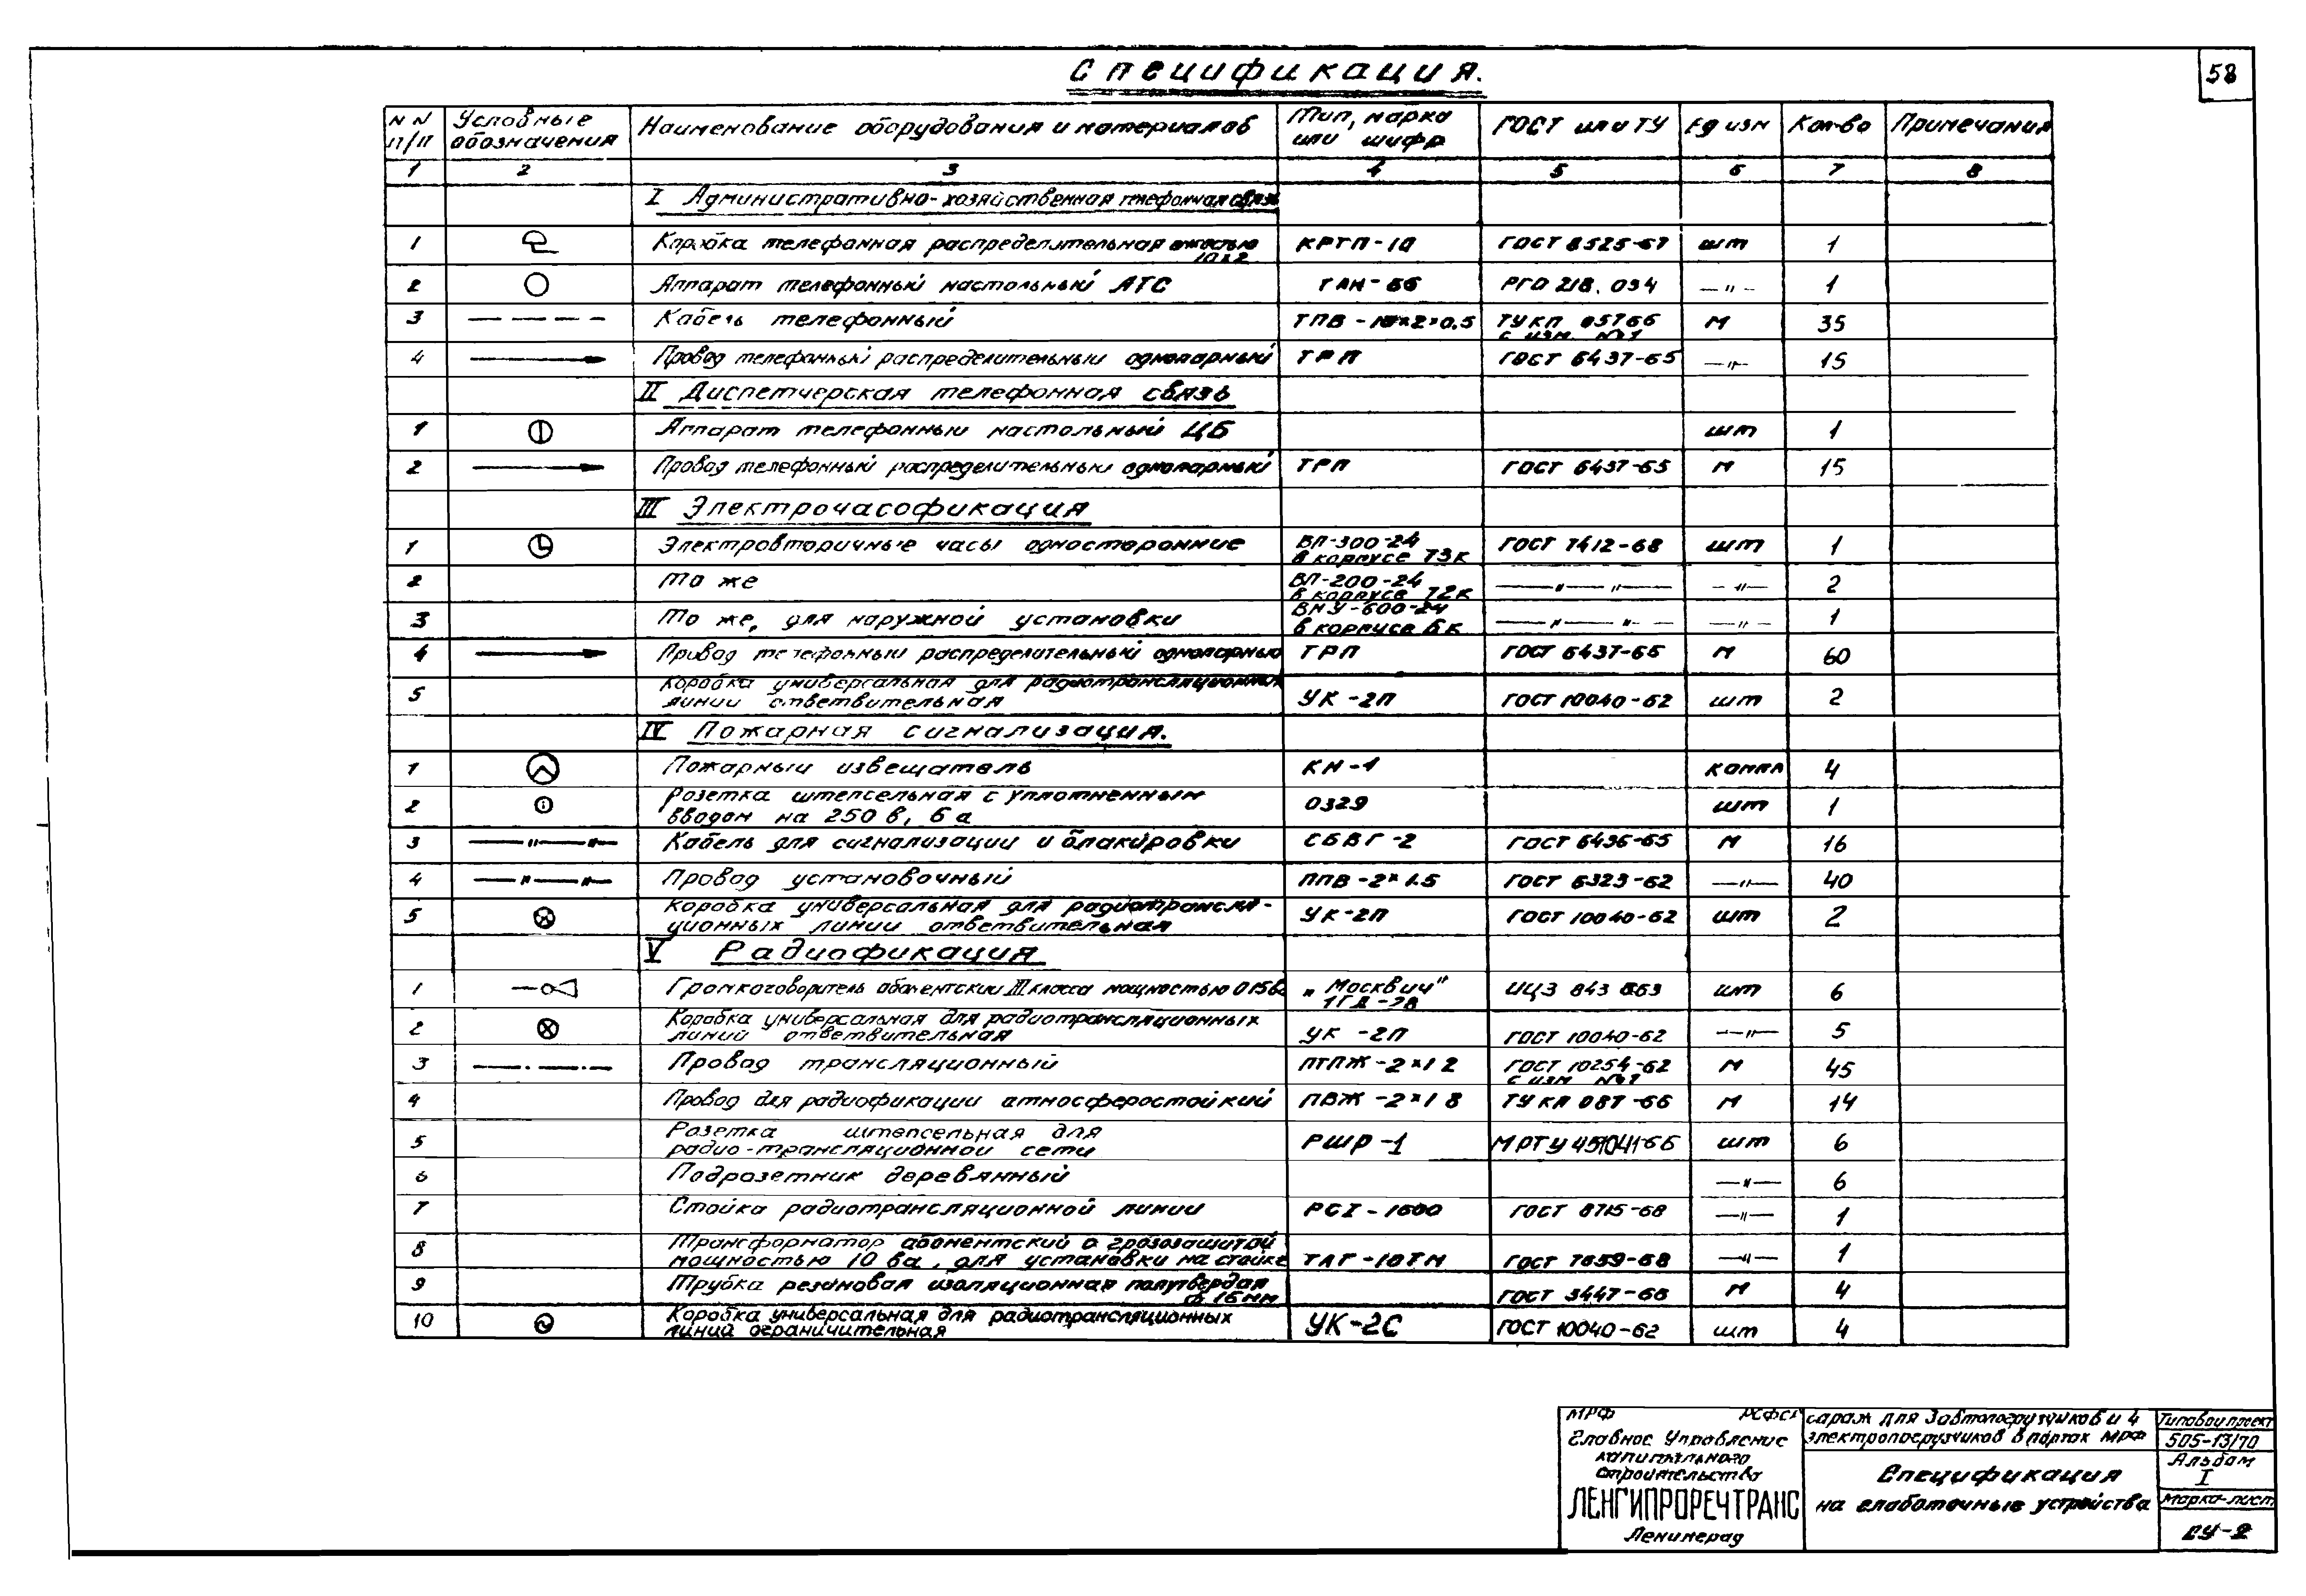 58
Спецификация.
NN п/п Условные обозначения Наименование оборудования и материалов Тип, марка или шифр ГОСТ или ТУ Ед изм Кол-во Примечания
1 2 3 4 5 6 7 8
I Административно-хозяйственная телефонная связь
1 Коробка телефонная распределительная емкостью 10х2 КРТП-10 ГОСТ 8525-67 шт 1
2 Аппарат телефонный настольный АТС ТАН-66 РГО 218.034 —"— 1
3 Кабель телефонный ТПВ-10×2×0.5 ТУКП 05766 с изм. №1 М 35
4 Провод телефонный распределительный однопарный ТРП ГОСТ 6437-65 —"— 15
II Диспетчерская телефонная связь
1 Аппарат телефонный настольный ЦБ шт 1
2 Провод телефонный распределительный однопарный ТРП ГОСТ 6437-65 М 15
III Электрочасофикация
1 Электровторичные часы односторонние ВП-300-24 в корпусе Т3К ГОСТ 7412-68 шт 1
2 То же ВП-200-24 в корпусе Т2К —"—"— —"— 2
3 То же, для наружной установки ВНУ-600-24 в корпусе БК —"—"— —"— 1
4 Провод телефонный распределительный однопарный ТРП ГОСТ 6437-65 М 60
5 Коробка универсальная для радиотрансляционных
линии ответвительная УК-2П ГОСТ 10040-62 шт 2
IV Пожарная сигнализация.
1 Пожарный извещатель КН-1 компл 4
2 Розетка штепсельная с уплотненным
вводом на 250 в, 6 а 0329 шт 1
3 Кабель для сигнализации и блакировки СБВГ-2 ГОСТ 6436-65 М 16
4 Провод установочный ППВ-2×1.5 ГОСТ 6323-62 —"— 40
5 Коробка универсальная для радиотрансля-
ционных линии ответвительная УК-2П ГОСТ 10040-62 шт 2
V Радиофикация
1 Громкоговоритель абонентский III класса мощностью 0 15в „Москвич" 1ГД-28 ИЦЗ 843 шт 6
2 Коробка универсальная для радиотрансляционных
линий ответвительная УК-2П ГОСТ 10040-62 —"— 5
3 Провод трансляционный ПТПЖ-2×1 2 ГОСТ 10254-62 с изм №1 М 45
4 Провод для радиофикации атмосферостойкий ПВЖ-2×1 8 ТУ КП 087-66 М 14
5 Розетка штепсельная для
радио-трансляционной сети РШР-1 МРТУ 451041-66 шт 6
6 Подрозетник деревянный —"— 6
7 Стойка радиотрансляционной линии РСI-1600 ГОСТ 8715-68 —"— 1
8 Трансформатор абонентский с грозозащитой
мощностью 10 ва, для установки на стойке ТАГ-10ТМ ГОСТ 7659-68 —"— 1
9 Трубка резиновая изоляционная полутвердая ф 16мм ГОСТ 3447-66 М 4
10 Коробка универсальная для радиотрансляционных
линий ограничительная УК-2С ГОСТ 10040-62 шт 4
МРФ РСФСР
Главное Управление
капитального
строительства
ЛЕНГИПРОРЕЧТРАНС
Ленинград
гараж для 3 автопогрузчиков и 4
электропогрузчиков в портах МРФ
Спецификация
на слаботочные устройства
Типовой проект
505-13/70
Альбом
I
Марка-лист
СУ-2